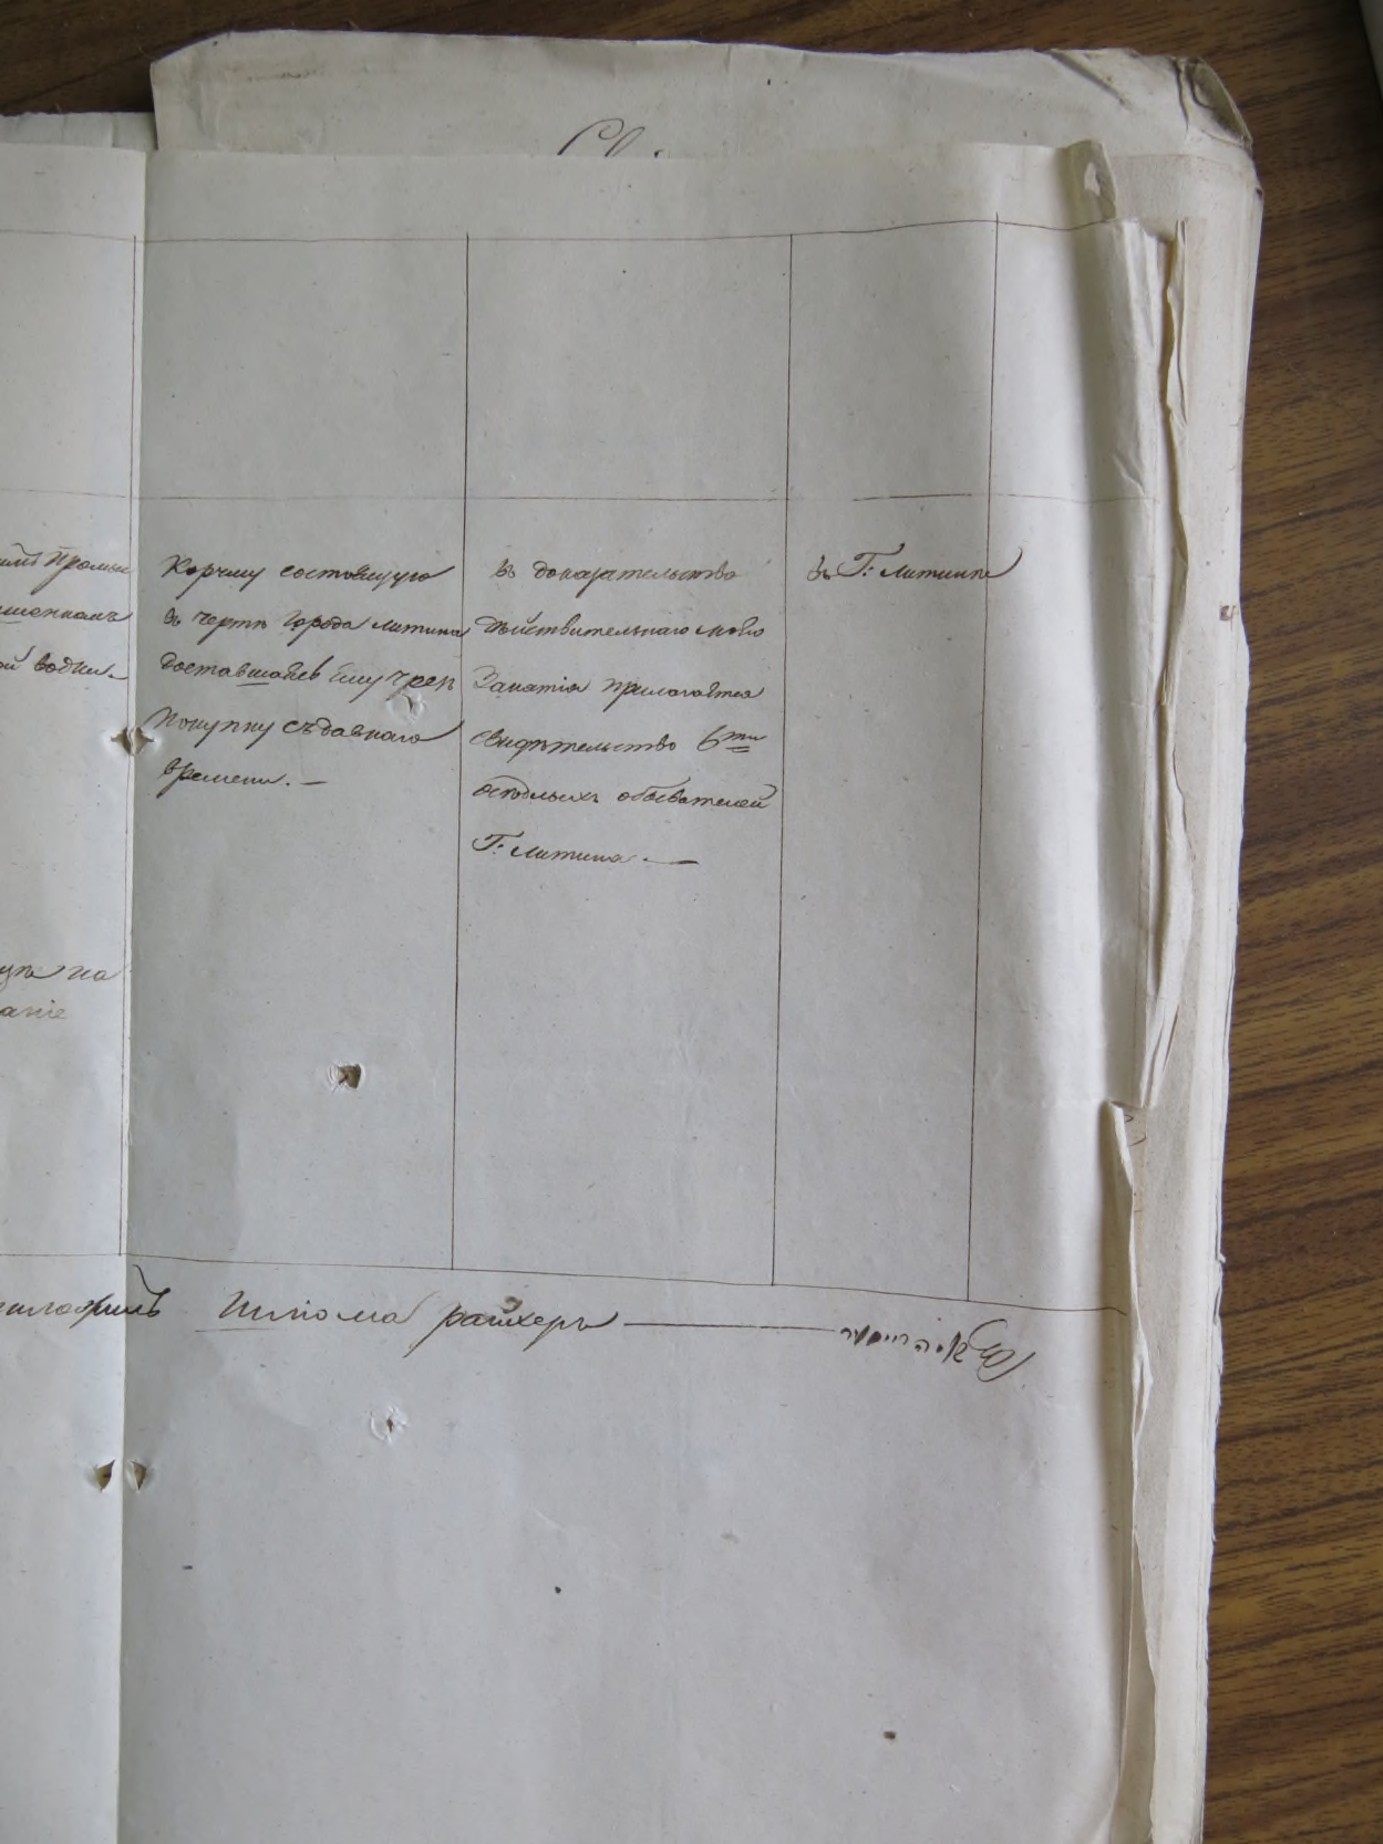 Промы
ой водки.
на
аніе
Корчму состоящую
въ чертѣ города Литина
доставшаеся Ему чрезъ
покупку съ давнаго
времени. —
въ доказательство
дѣйствительнаго моего
Занятія прилагается
свидѣтельство 6ти
осѣдлыхъ обывателей
Г: Литина —
въ Г: Литинѣ
Шліома райхеръ